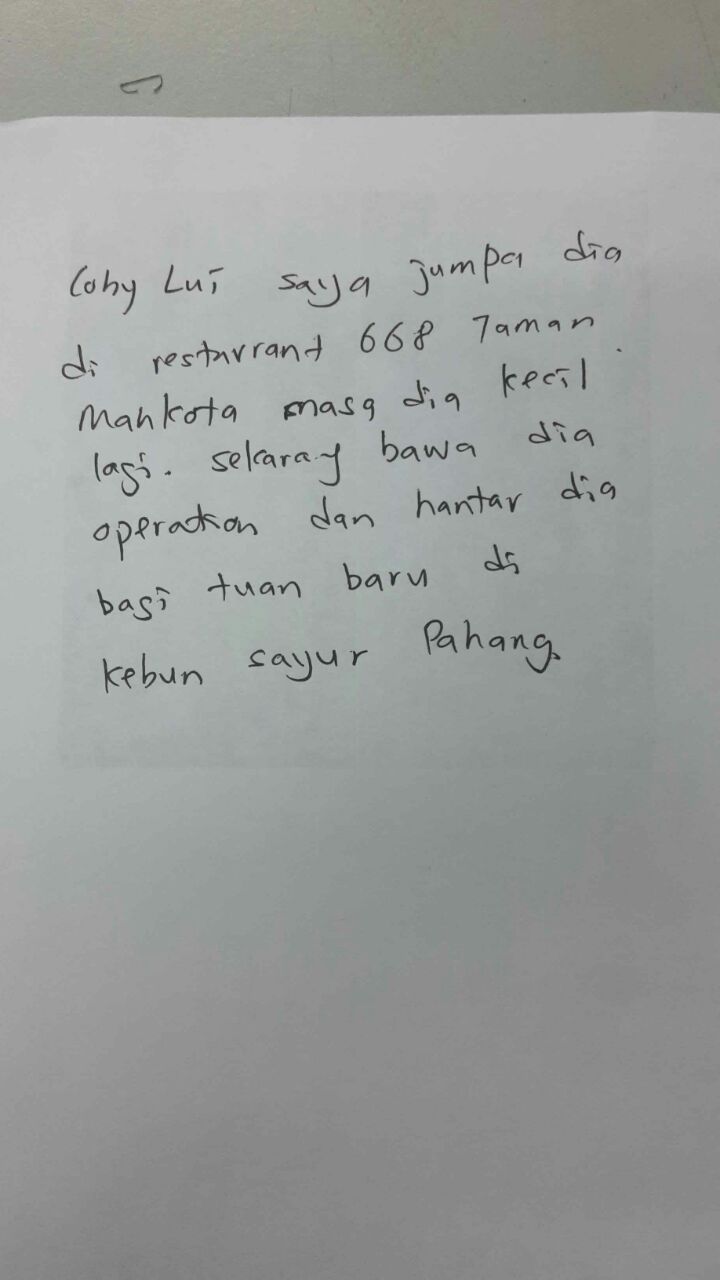 Coby Lui saya jumpa dia
di resturrant 668 Taman
Mahkota masa dia kecil
lagi. sekarang bawa dia
operation dan hantar dia
bagi tuan baru di
kebun sayur Pahang.